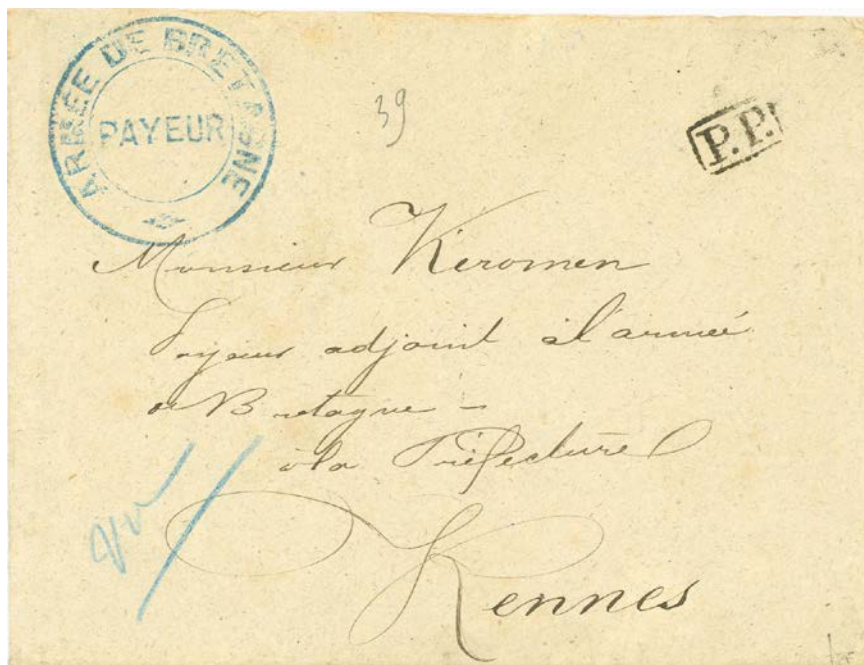 ARMÉE DE BRETAGNE
PAYEUR
39
P.P.
Monsieur Keromen
Payeur adjoint à l'armée
de Bretagne -
à la Préfecture
Rennes